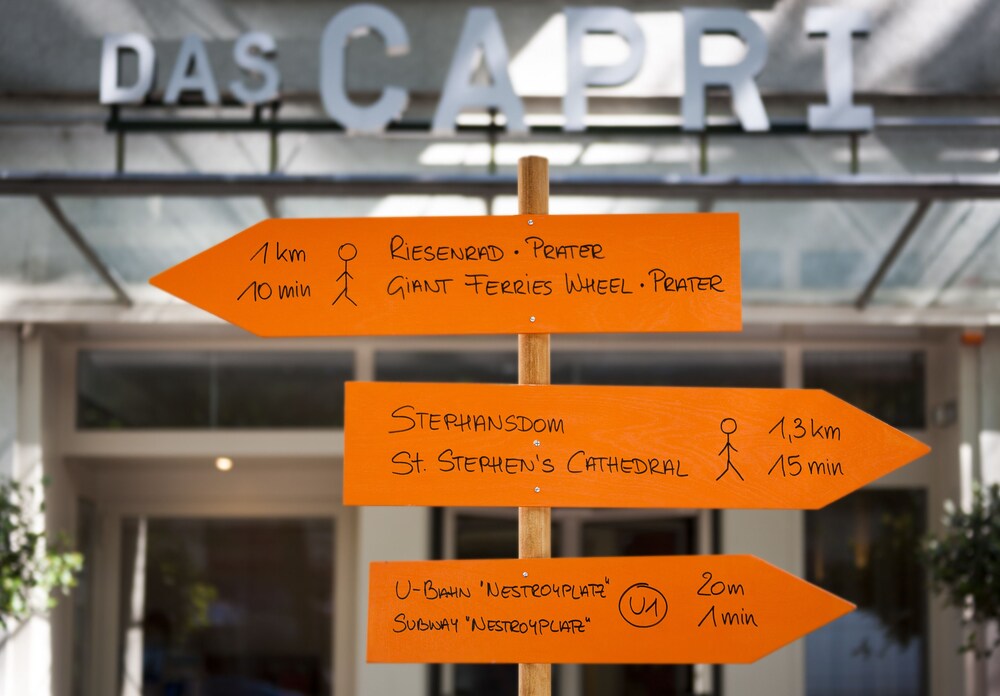 DAS CAPRI
1 km
10 min
RIESENRAD · PRATER
GIANT FERRIES WHEEL · PRATER
STEPHANSDOM
ST. STEPHEN'S CATHEDRAL
1,3 km
15 min
U-BAHN "NESTROYPLATZ"
SUBWAY "NESTROYPLATZ"
U1
20m
1 min